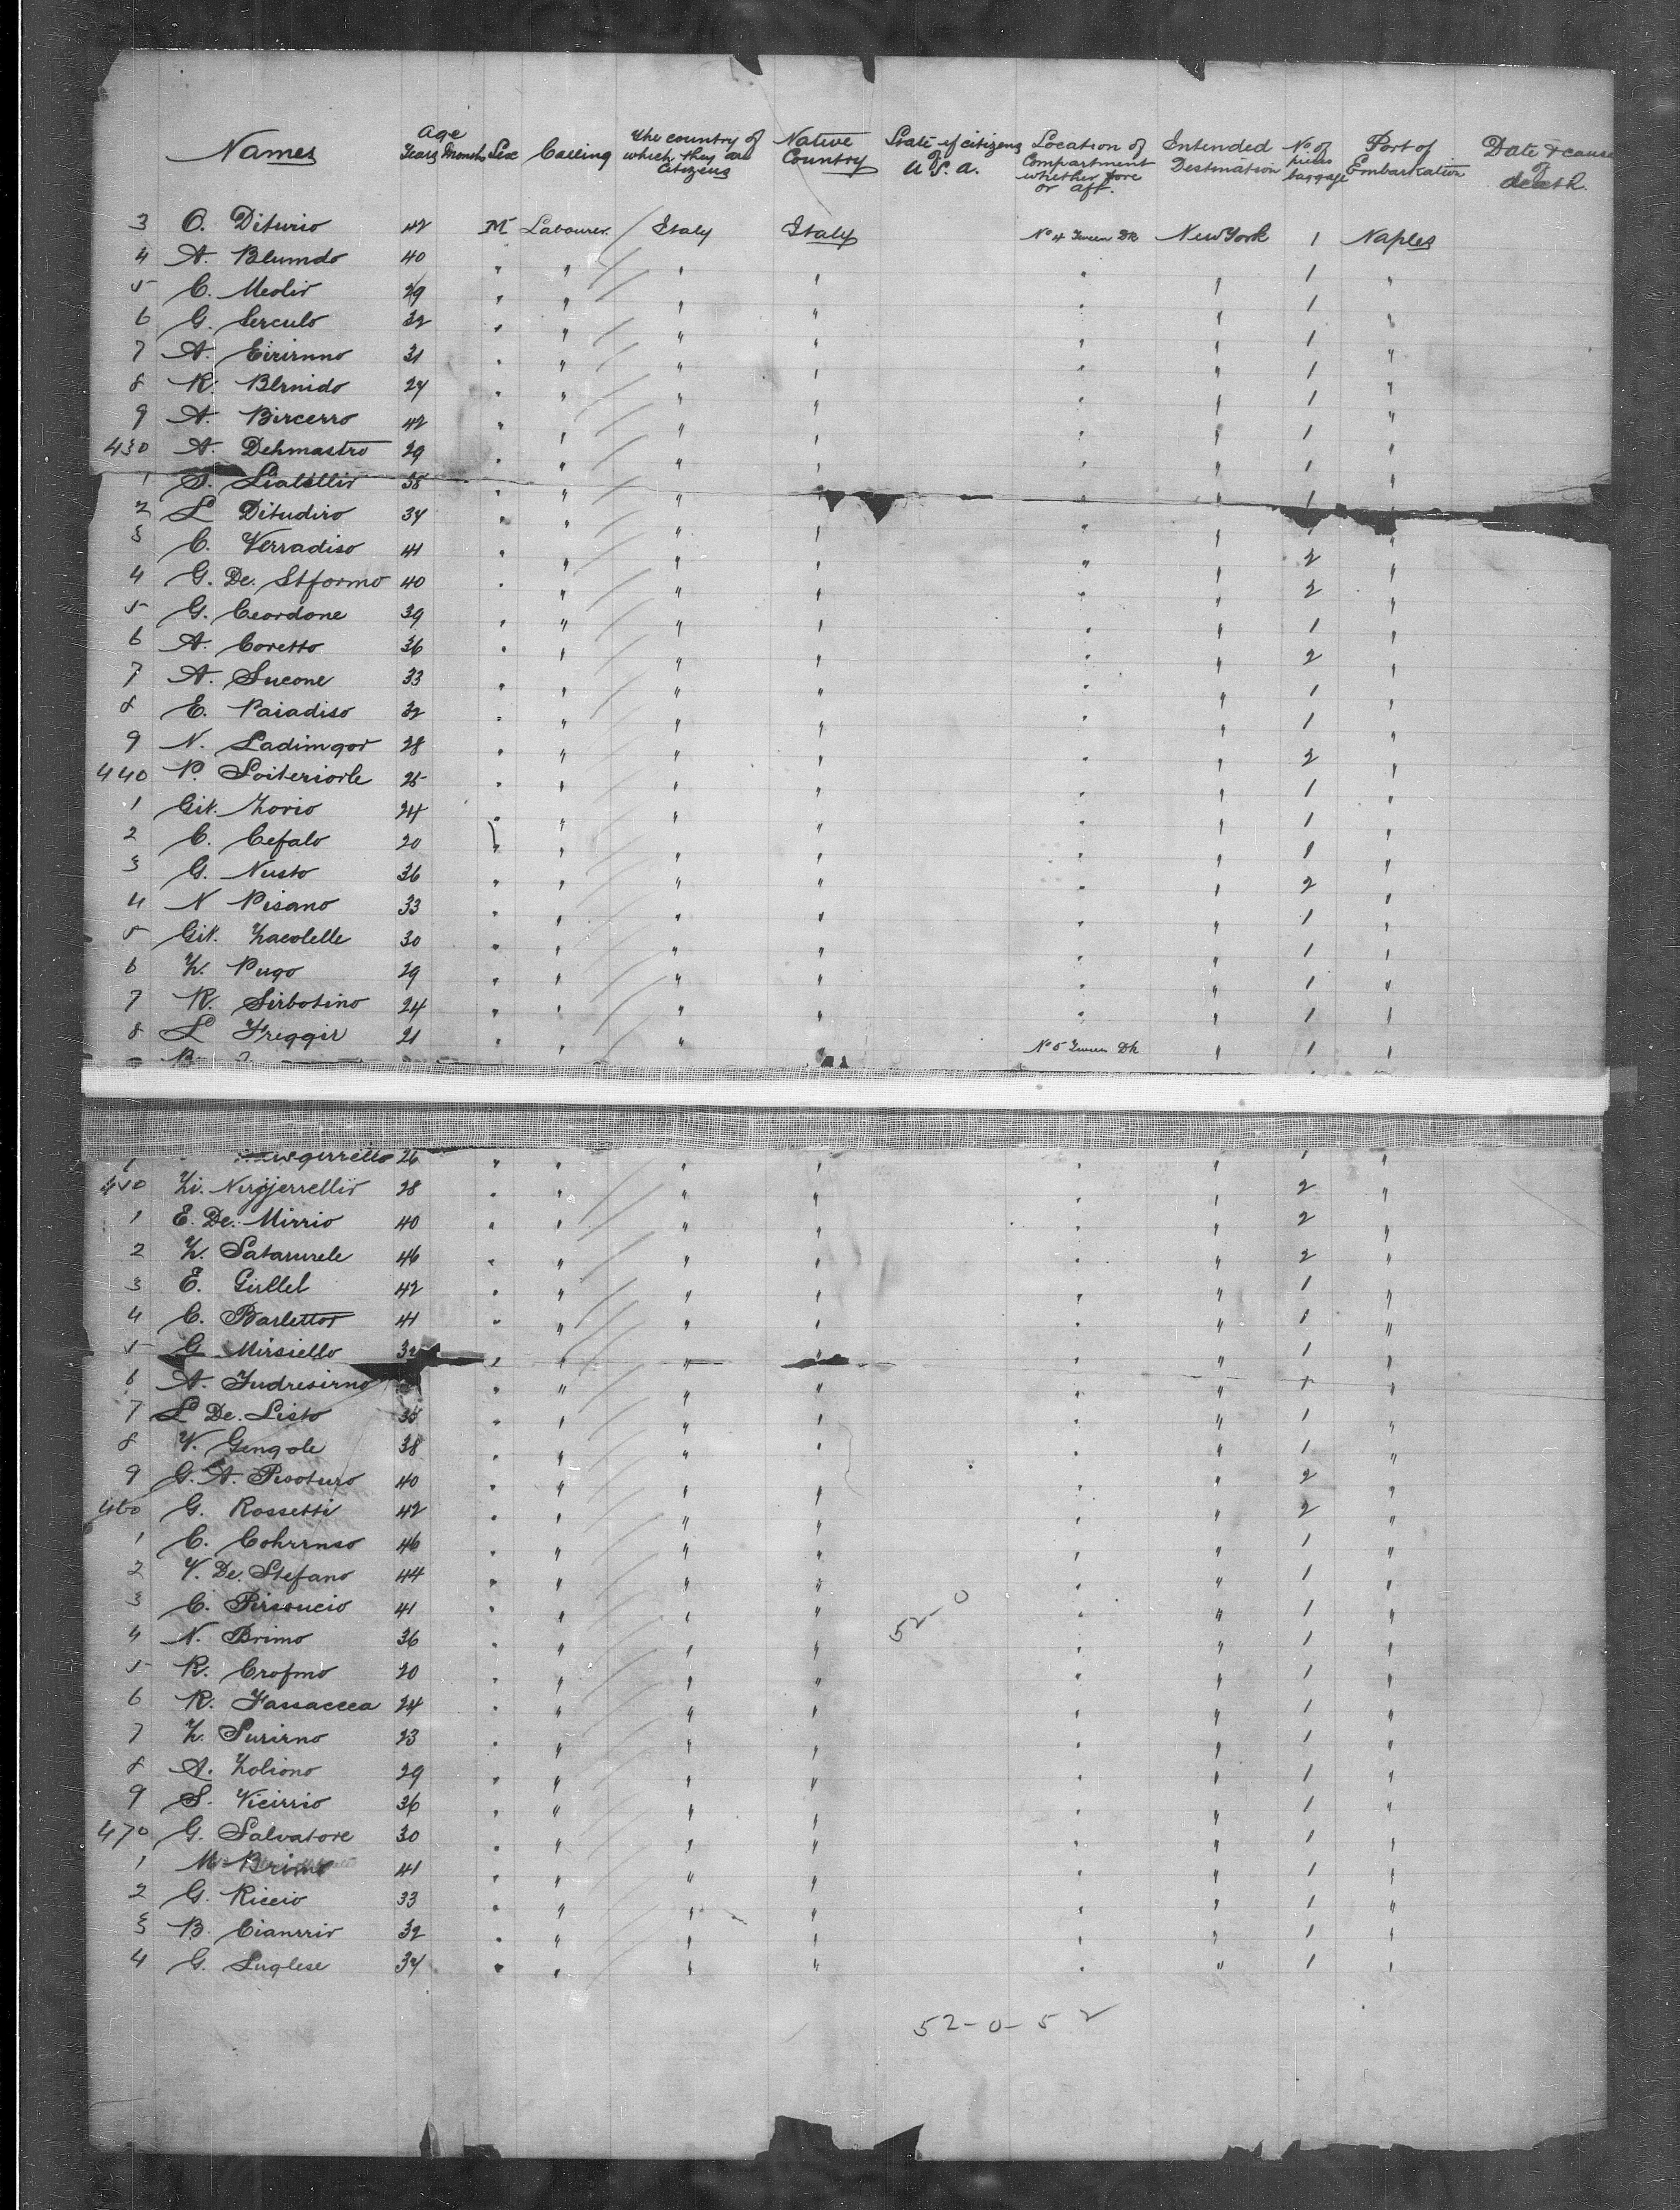 Names Age Years Months Sex Calling The country of which they are Citizens Native Country State if citizens of U.S.A. Location of Compartment whether fore or aft. Intended Destination No of pieces baggage Port of Embarkation Date & cause of death.
3 O. Diturio 42 M Labourer / Italy Italy No 4 Tween Dk New York 1 Naples
4 A. Blumdo 40 " " " " " " 1 "
5 C. Meolir 29 " " " " " " 1 "
6 G. Serculo 32 " " " " " " 1 "
7 A. Eirirnno 31 " " " " " " 1 "
8 R. Blrnido 24 " " " " " " 1 "
9 A. Bircerro 42 " " " " " " 1 "
430 A. Dehmastro 29 " " " " " " 1 "
1 S. Lialellir 38 " " " " " " 1 "
2 L Ditudiro 34 " " " " " " "
3 C. Verradiso 41 " " " " " " 2 "
4 G. De. Stformo 40 " " " " " " 2 "
5 G. Ceordone 39 " " " " " " 1 "
6 A. Coretto 36 " " " " " " 2 "
7 A. Sucone 33 " " " " " " 1 "
8 E. Paiadiso 32 " " " " " " 1 "
9 N. Ladimqor 28 " " " " " " 2 "
440 P. Loiteriorle 25 " " " " " " 1 "
1 Git. Zorio 24 " " " " " " 1 "
2 C. Cefalo 20 " " " " " " 1 "
3 G. Nusto 36 " " " " " " 2 "
4 N Pisano 33 " " " " " " 1 "
5 Git. Zacolelle 30 " " " " " " 1 "
6 Z. Pugo 29 " " " " " " 1 "
7 R. Sirbotino 24 " " " " " " 1 "
8 L Freggir 21 " " " " No 5 Tween Dk " 1 "
B
26 " " " " " " 1 "
450 Zi. Nirgjerrellir 28 " " " " " " 2 "
1 E. De. Mirrio 40 " " " " " " 2 "
2 Z. Satarurele 46 " " " " " " 2 "
3 E. Girllel 42 " " " " " " 1 "
4 C. Barlettor 41 " " " " " " 1 "
5 G Mirsiello " " " " " " 1 "
6 A. Fudresirno " " " " " " 1 "
7 L De. Listo 35 " " " " " " 1 "
8 V. Gengole 38 " " " " " " 1 "
9 G. A. Pisoturo 40 " " " " " " 2 "
460 G. Rossetti 42 " " " " " " 2 "
1 C. Cohrrnso 46 " " " " " " 1 "
2 V. De. Stefano 44 " " " " " " 1 "
3 C. Pirsoucio 41 " " " " " " 1 "
52-0
4 N. Brimo 36 " " " " " " 1 "
5 R. Crofmo 20 " " " " " " 1 "
6 R. Fassaccea 24 " " " " " " 1 "
7 Z. Surirno 23 " " " " " " 1 "
8 A. Zoliono 29 " " " " " " 1 "
9 S. Vicirrio 36 " " " " " " 1 "
470 G. Salvatore 30 " " " " " " 1 "
1 M Brimo 41 " " " " " " 1 "
2 G. Riccio 33 " " " " " " 1 "
3 B. Cianrrir 32 " " " " " " 1 "
4 G. Luglese 34 " " " " " " 1 "
52-0-52